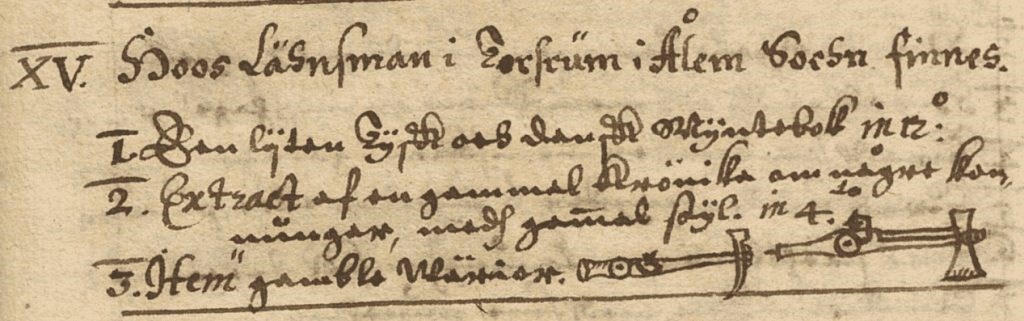 XV. Hoos Lähnsman i Torsrüm i Ålem Sochn finnes.
1. Een lijten Tyskt och danskt Myntebok in 12°:
2. Extract af en gammal Krönika om någre kon,
nungar, medh gam̃al styl. in 4.to
3. Item gamble Wärior.